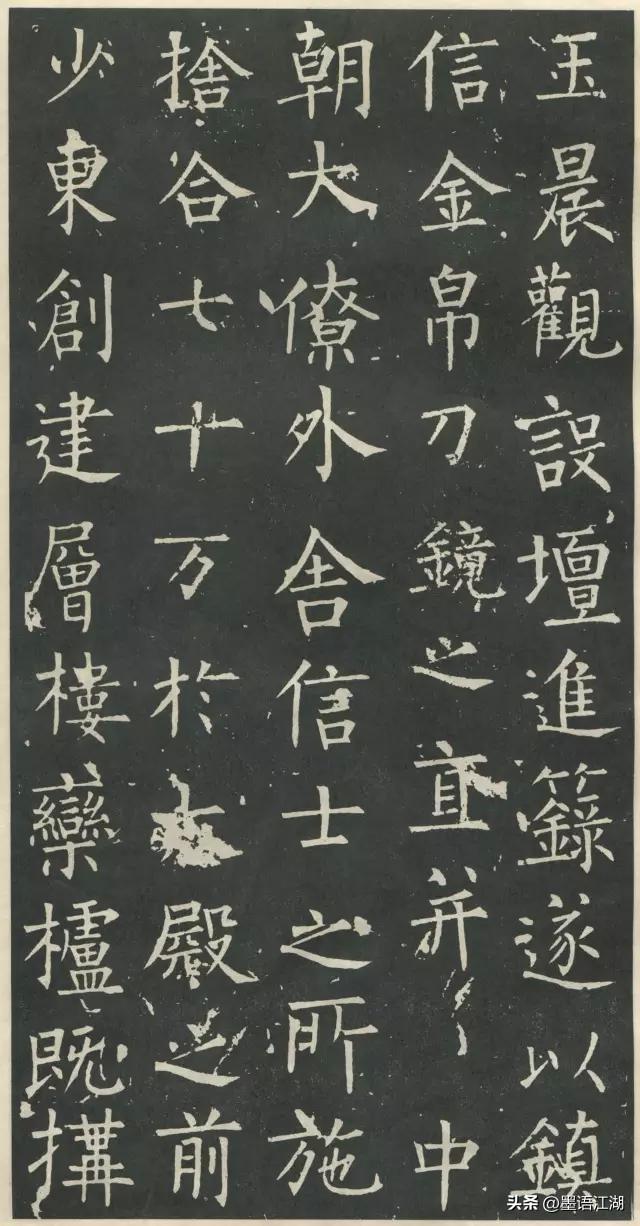 玉晨觀設壇進籙遂以鎮
信金帛刀鏡之直并中
朝大僚外舍信士之所施
捨合七十万於殿之前
少東創建層樓欒櫨既構
头条 @墨语江湖